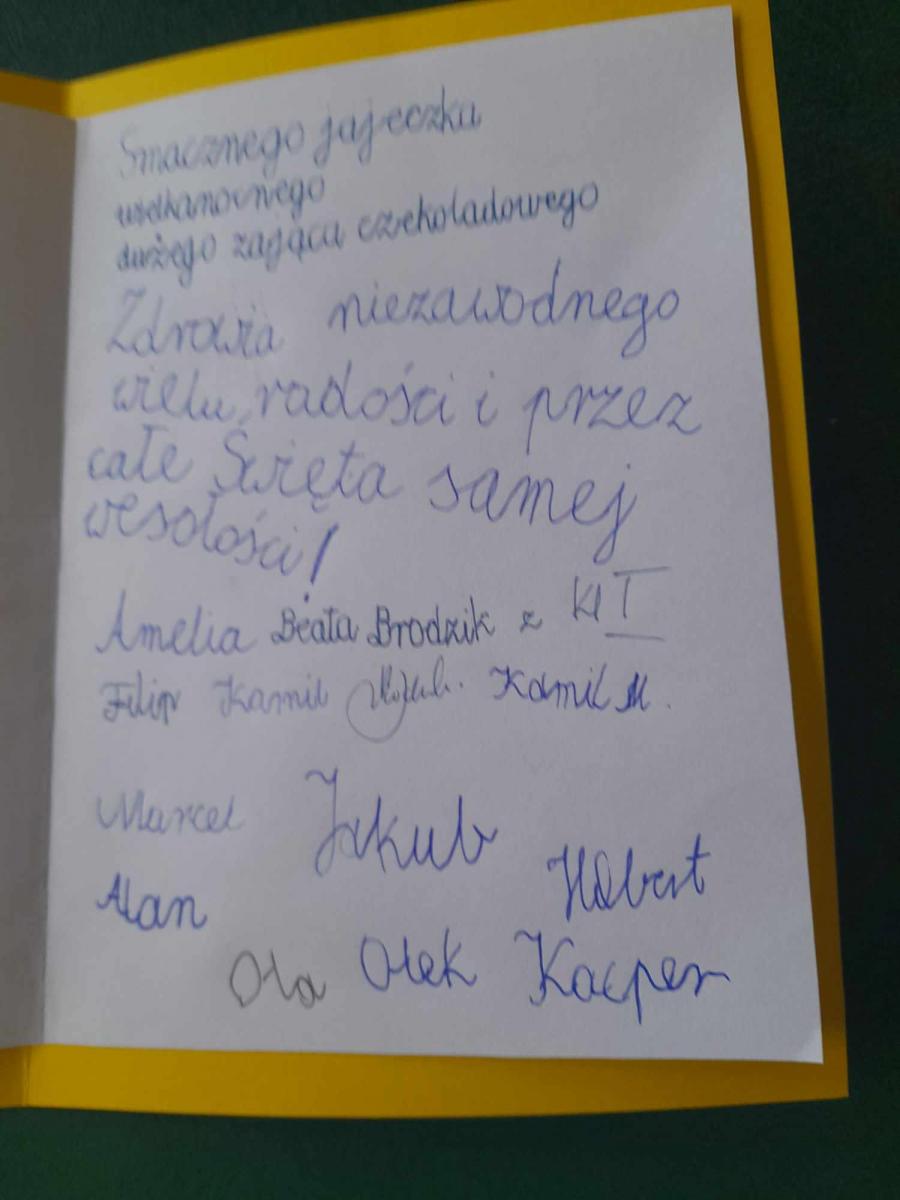 Smacznego jajeczka
wielkanocnego
dużego zająca czekoladowego
Zdrowia niezawodnego
wielu, radości i przez
całe Święta samej
wesołości!
Amelia Beata Brodzik z Kl I
Filip Kamil Kamil M.
Marcel Jakub
Alan Hubert
Ola Olek Kacper